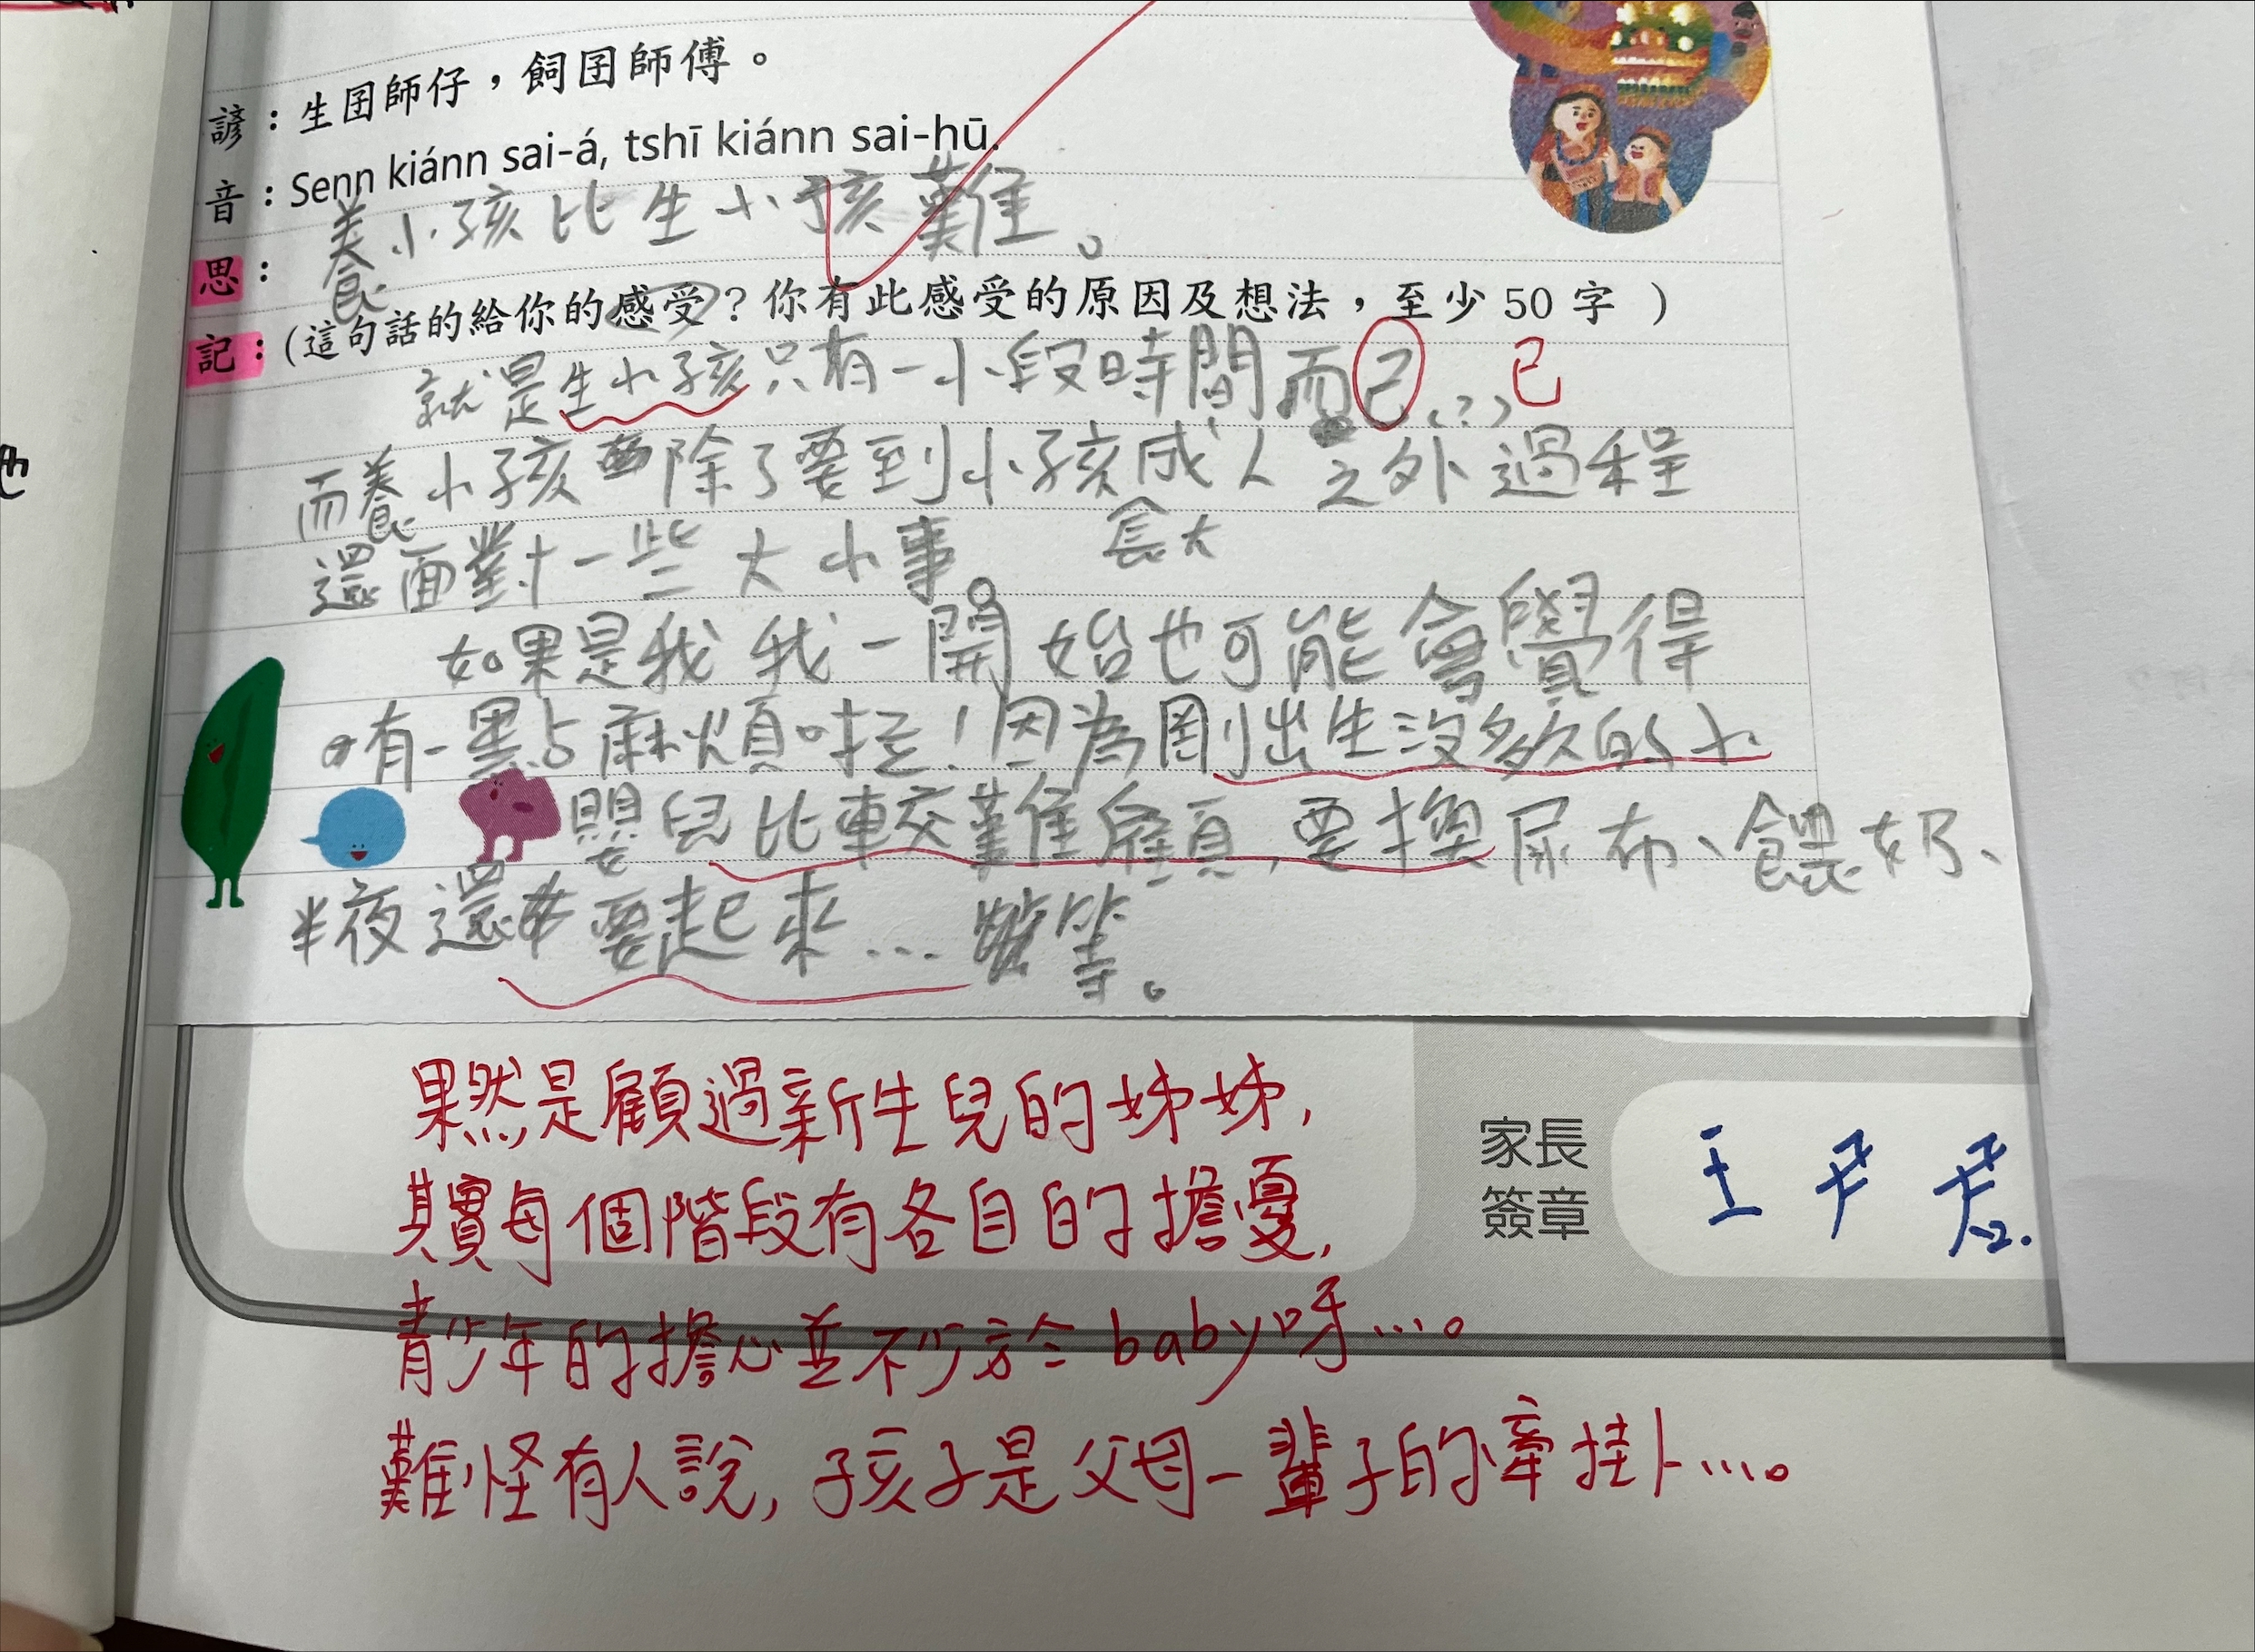 諺：生囝師仔，飼囝師傅。
音：Senn kiánn sai-á, tshī kiánn sai-hū.
思：養小孩比生小孩難。
記：(這句話的給你的感受？你有此感受的原因及想法，至少 50 字 )
就是生小孩只有一小段時間而己(?) 已
而養小孩除了要到小孩成人之外過程
長大
還面對一些大小事。
如果是我我一開始也可能會覺得
有一點麻煩哇！因為剛出生沒多久的小
嬰兒比較難顧，要換尿布、餵奶、
半夜還要起來…等。
果然是顧過新生兒的姊姊，
其實每個階段有各自的擔憂，
青少年的擔心並不少於baby呀…。
難怪有人說，孩子是父母一輩子的牽掛…。
家長
簽章